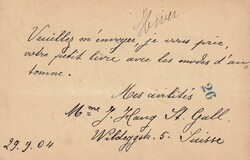 Hiver
Veuillez m'envoyer, je vous prie,
votre petit livre avec les modes d'au-
tomne.
26
Mes civilités
Mme J. Haug St. Gall.
Wildeggstr. 5. Suisse
29.9.04